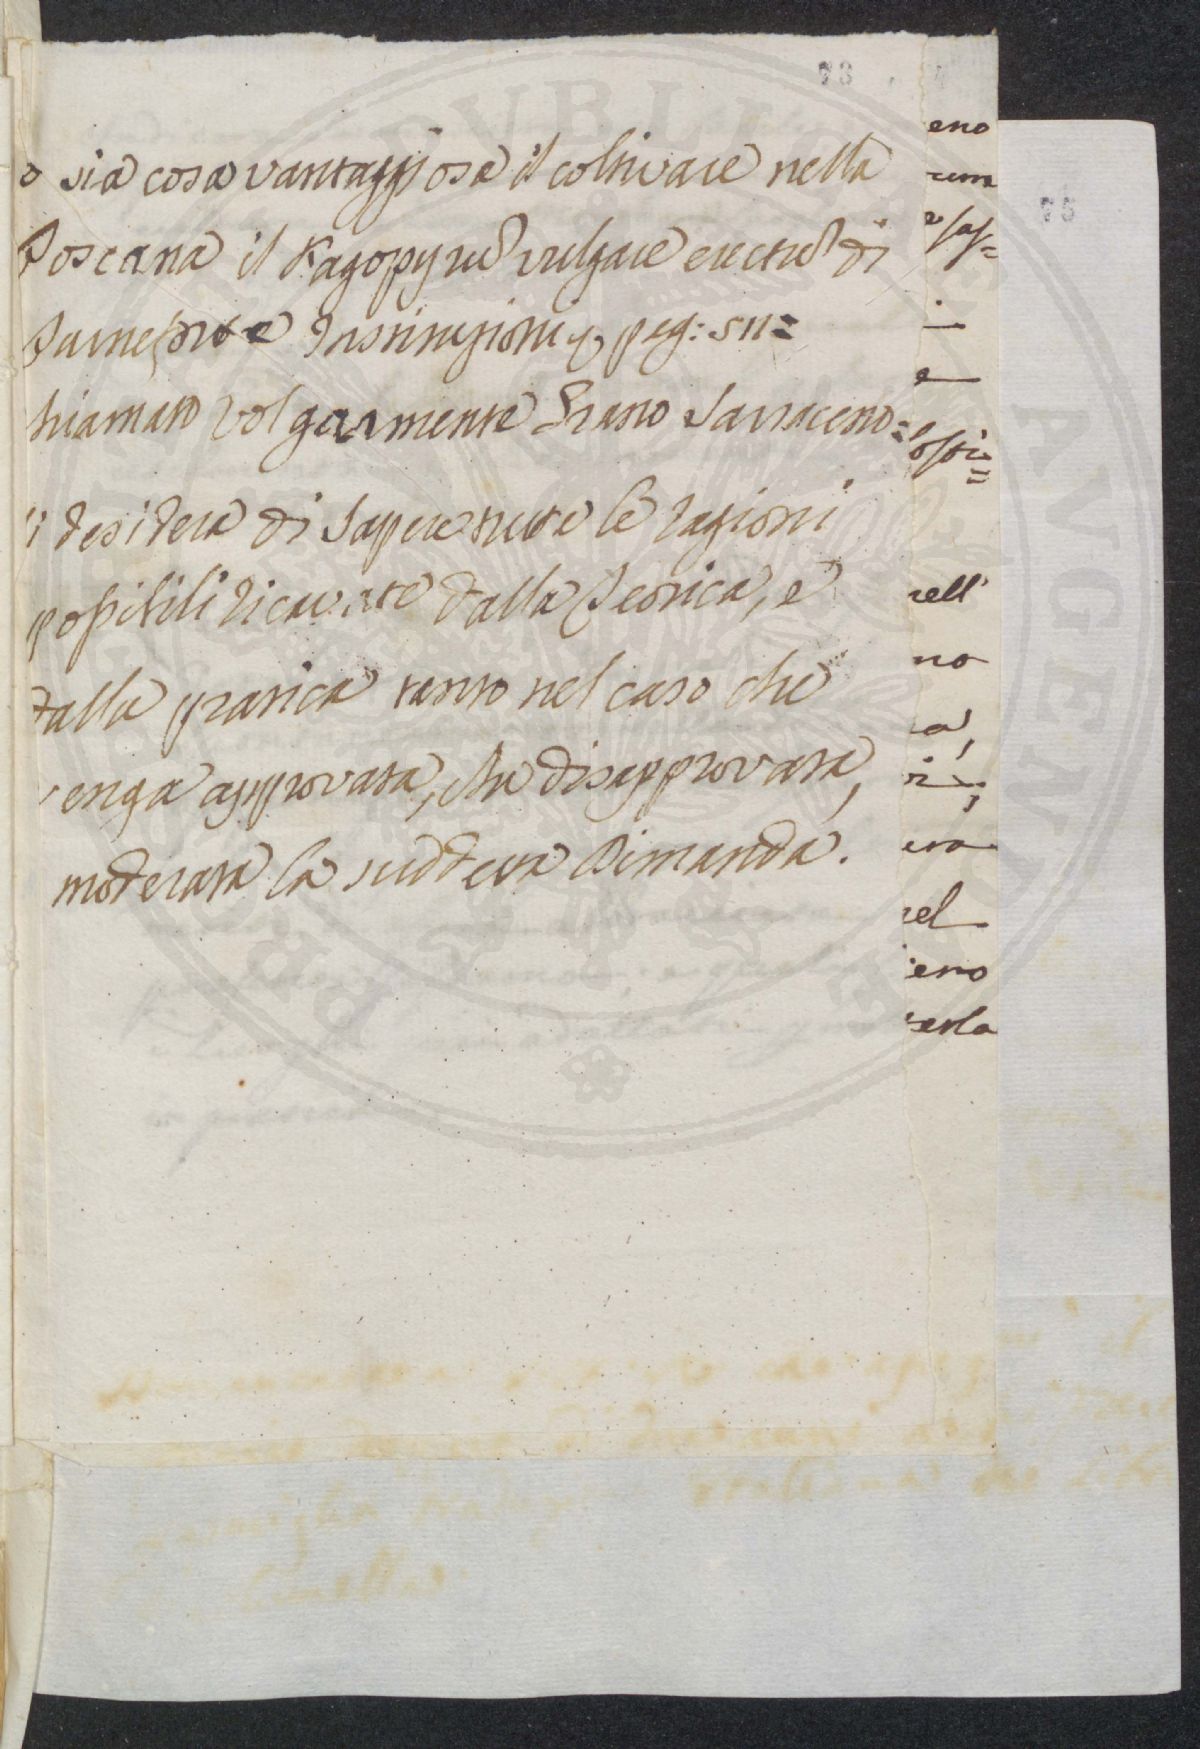 73
o sia cosa vantaggiosa il coltivare nella
Toscana il Fagopyrũ vulgare erectũ di
Institutioni pag: 511=
hiamato volgarmente Grano Sarraceno=
i desidera di Sapere tutte le ragioni
possibili ricavate dalla Teorica, e
dalla pratica tanto nel caso che
enga approvata, che disapprovata,
moderata la sudetta Dimanda.
eno
75
e
nell'
no
a,
nel
ieno